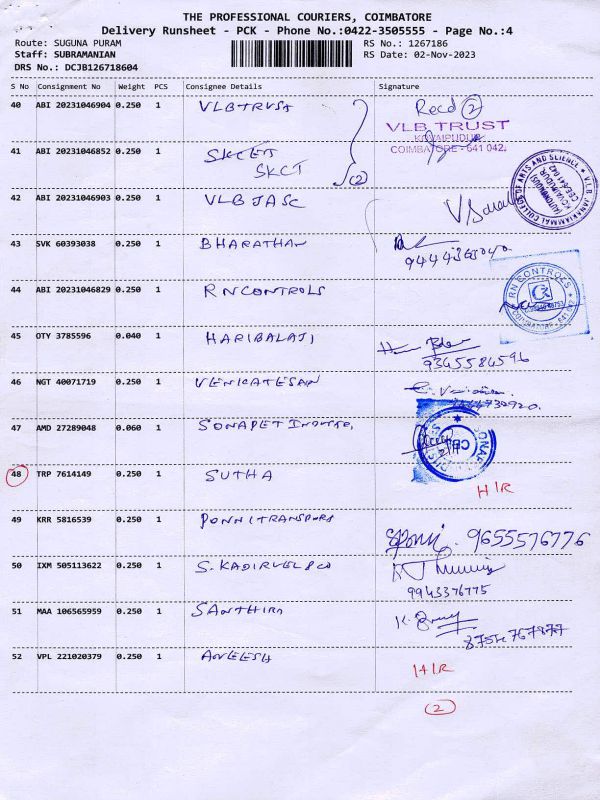 THE PROFESSIONAL COURIERS, COIMBATORE
Delivery Runsheet - PCK - Phone No.:0422-3505555 - Page No.:4
Route: SUGUNA PURAM RS No.: 1267186
Staff: SUBRAMANIAN RS Date: 02-Nov-2023
DRS No.: DCJB126718604
S No Consignment No Weight PCS Consignee Details Signature
40 ABI 20231046904 0.250 1 VLBTRUST Recd (2)
VLB TRUST
KOVAIPUDUR
COIMBATORE - 641 042.
41 ABI 20231046852 0.250 1 SKCET
SKCT (2)
42 ABI 20231046903 0.250 1 VLB JASC
V.L.B. JANAKIAMMAL COLLEGE OF ARTS AND SCIENCE
(AUTONOMOUS)
KOVAIPUDUR
CBE-641 042
43 SVK 60393038 0.250 1 BHARATHAN
44 ABI 20231046829 0.250 1 RNCONTROLS
RN CONTROLS
COIMBATORE - 641 042
45 OTY 3785596 0.040 1 HARIBALAJI
9345584596
46 NGT 40071719 0.250 1 VENKATESAN
47 AMD 27289048 0.060 1 SONAPET
48 TRP 7614149 0.250 1 SUTHA H/R
49 KRR 5816539 0.250 1 PONNITRANSPORT
9655576776
50 IXM 505113622 0.250 1 S. KADIRVEL & CO
9943376775
51 MAA 106565959 0.250 1 SANTHIRA
52 VPL 221020379 0.250 1 ANEESH H/R
(2)